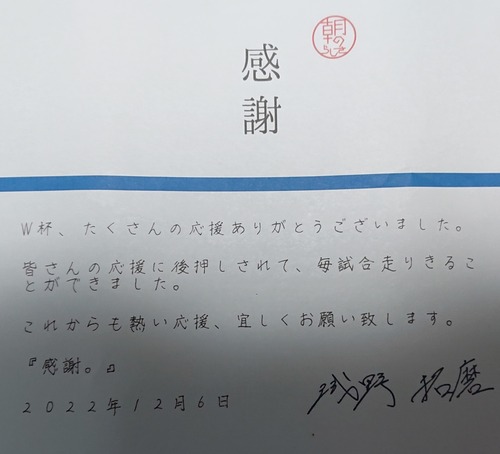 感謝
朝のらしさ
W杯、たくさんの応援ありがとうございました。
皆さんの応援に後押しされて、毎試合走りきるこ
とができました。
これからも熱い応援、宜しくお願い致します。
『感謝。』
2022年12月6日
浅野 拓磨